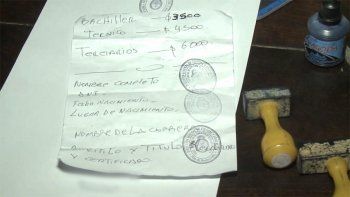 BACHILLER — $3500
TECNICO — $4500
TERCIARIOS — $6000
NOMBRE COMPLETO
DNI.
FECHA NACIMIENTO.
LUGAR DE NACIMIENTO.
NOMBRE DE LA CARRERA
Y TITULO
Y CERTIFICADO